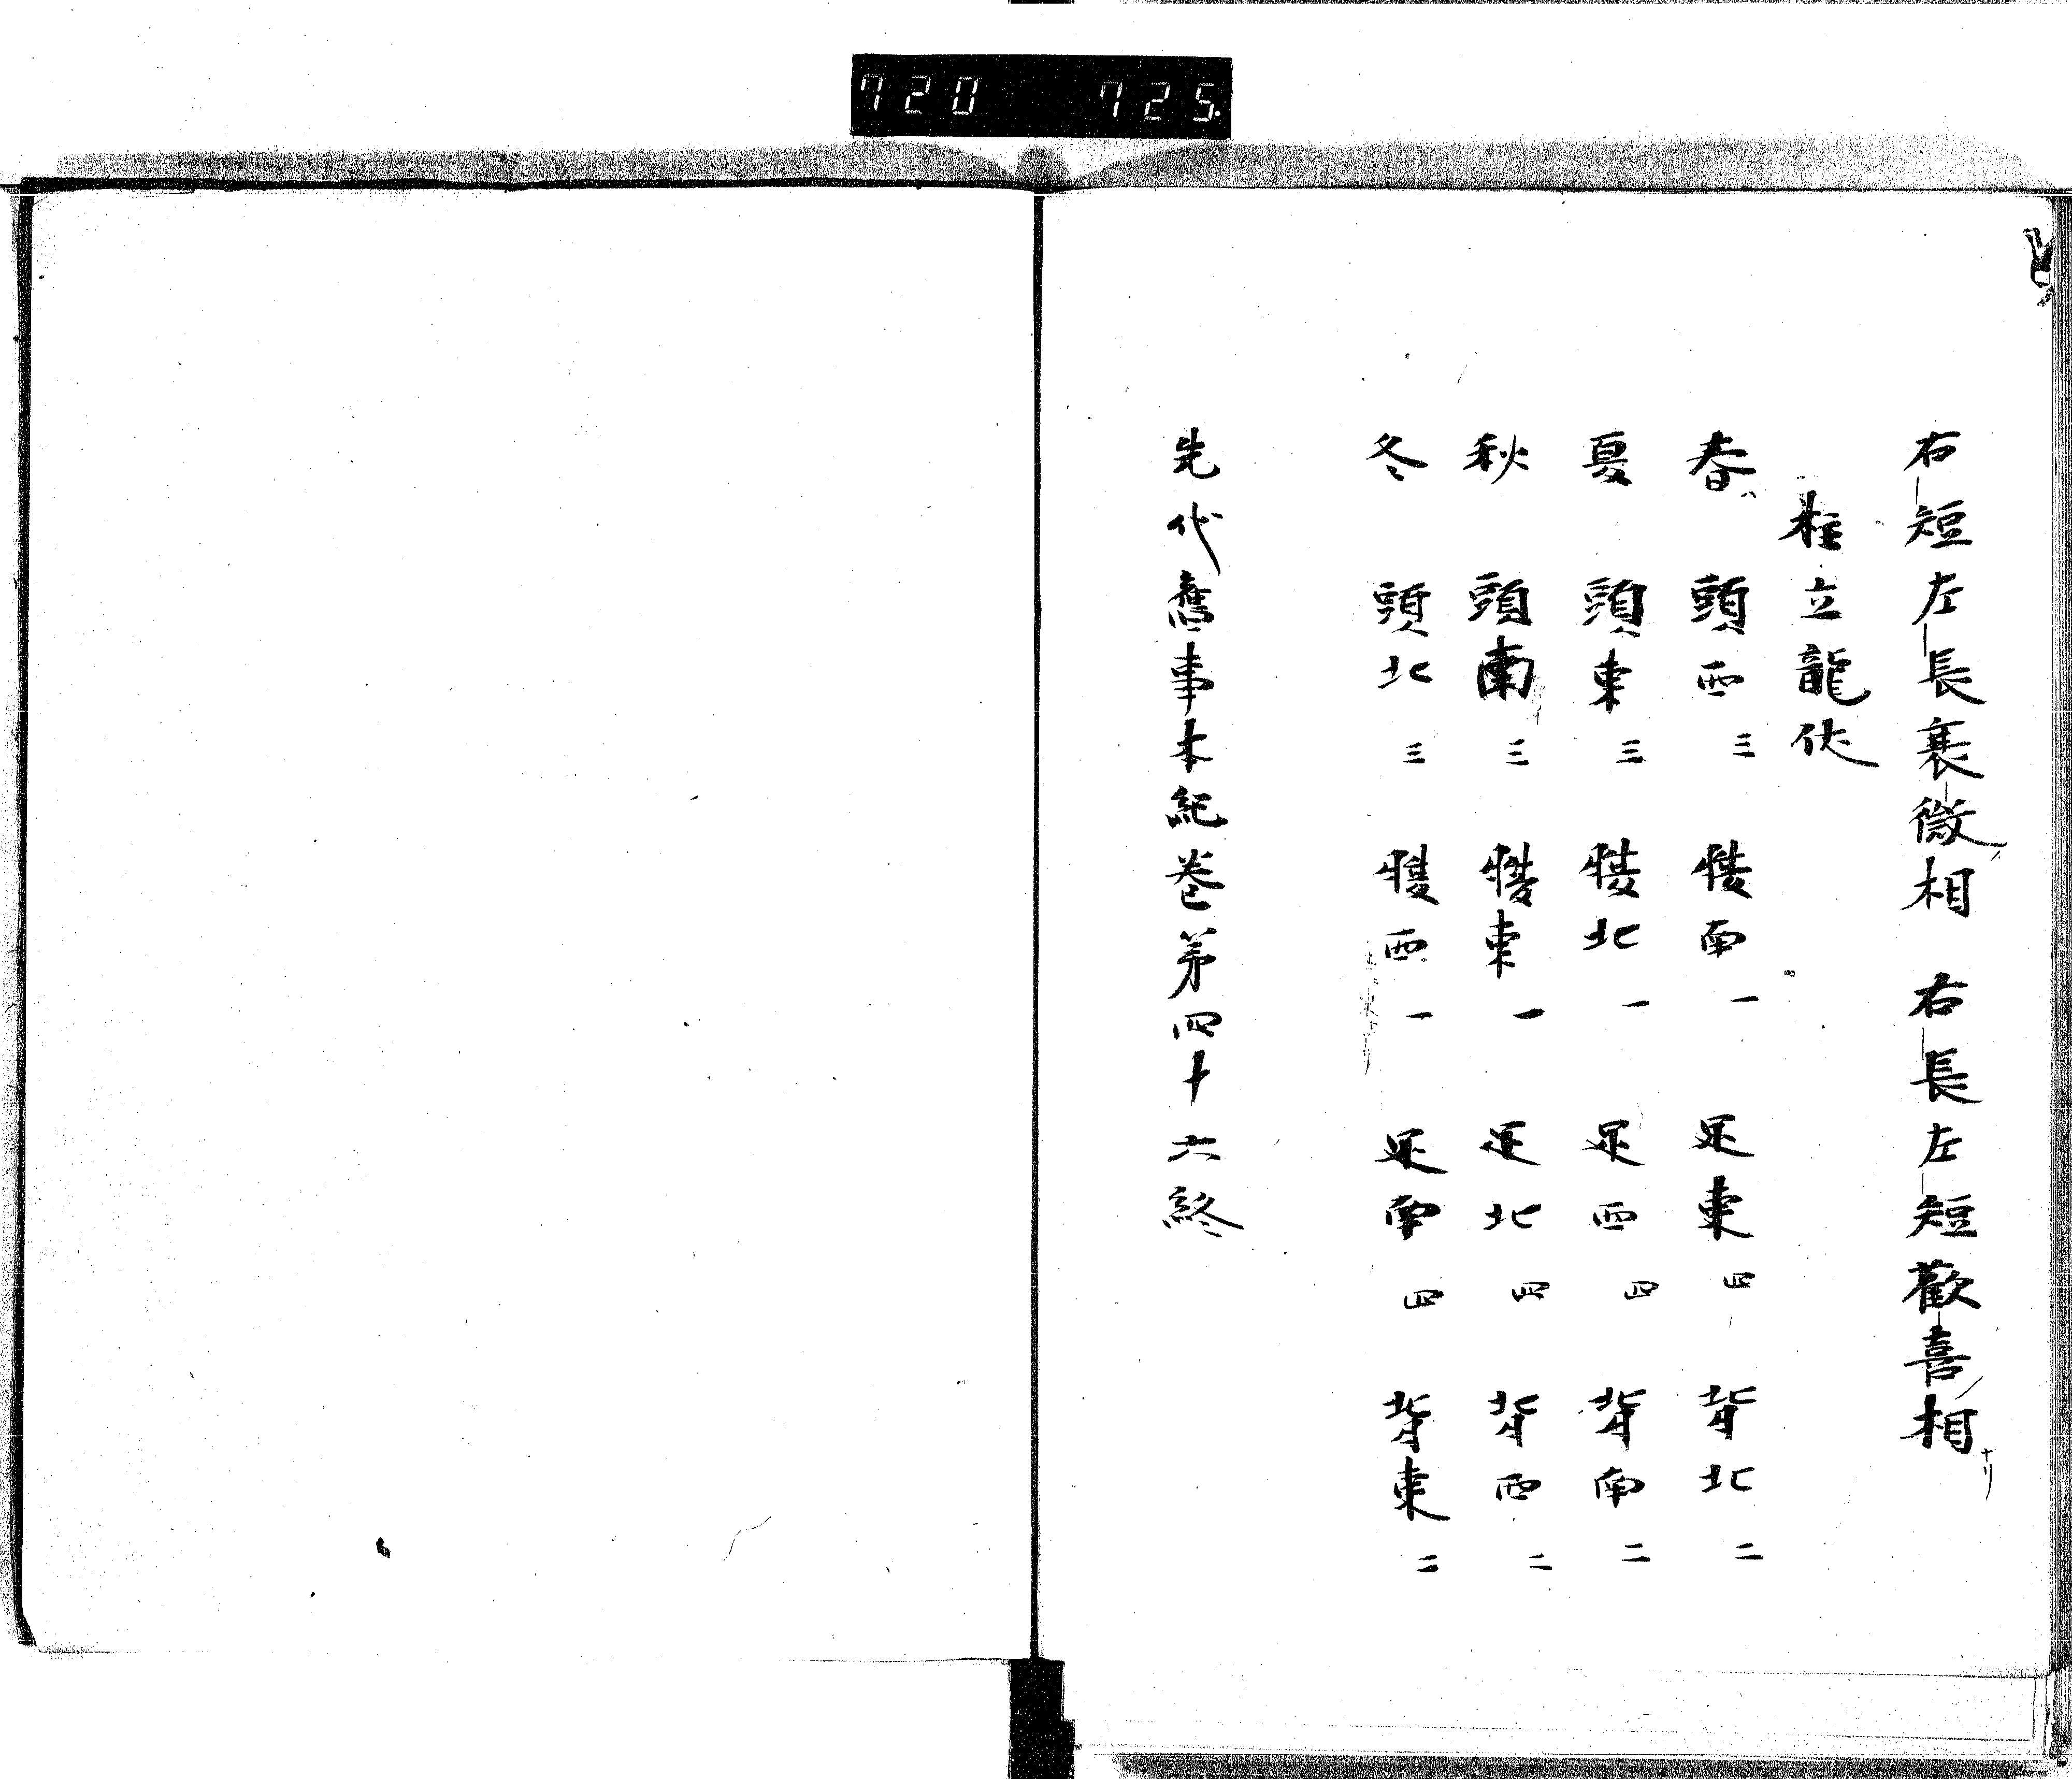 720 725.
右短左長衰微相 右長左短歡喜相ナリ
柱立龍伏
春 頭西三 腹南一 足東四 背北二
夏 頭東三 腹北一 足西四 背南二
秋 頭南三 腹東一 足北四 背西二
冬 頭北三 腹西一 足南四 背東二
先代舊事本紀巻第四十六終